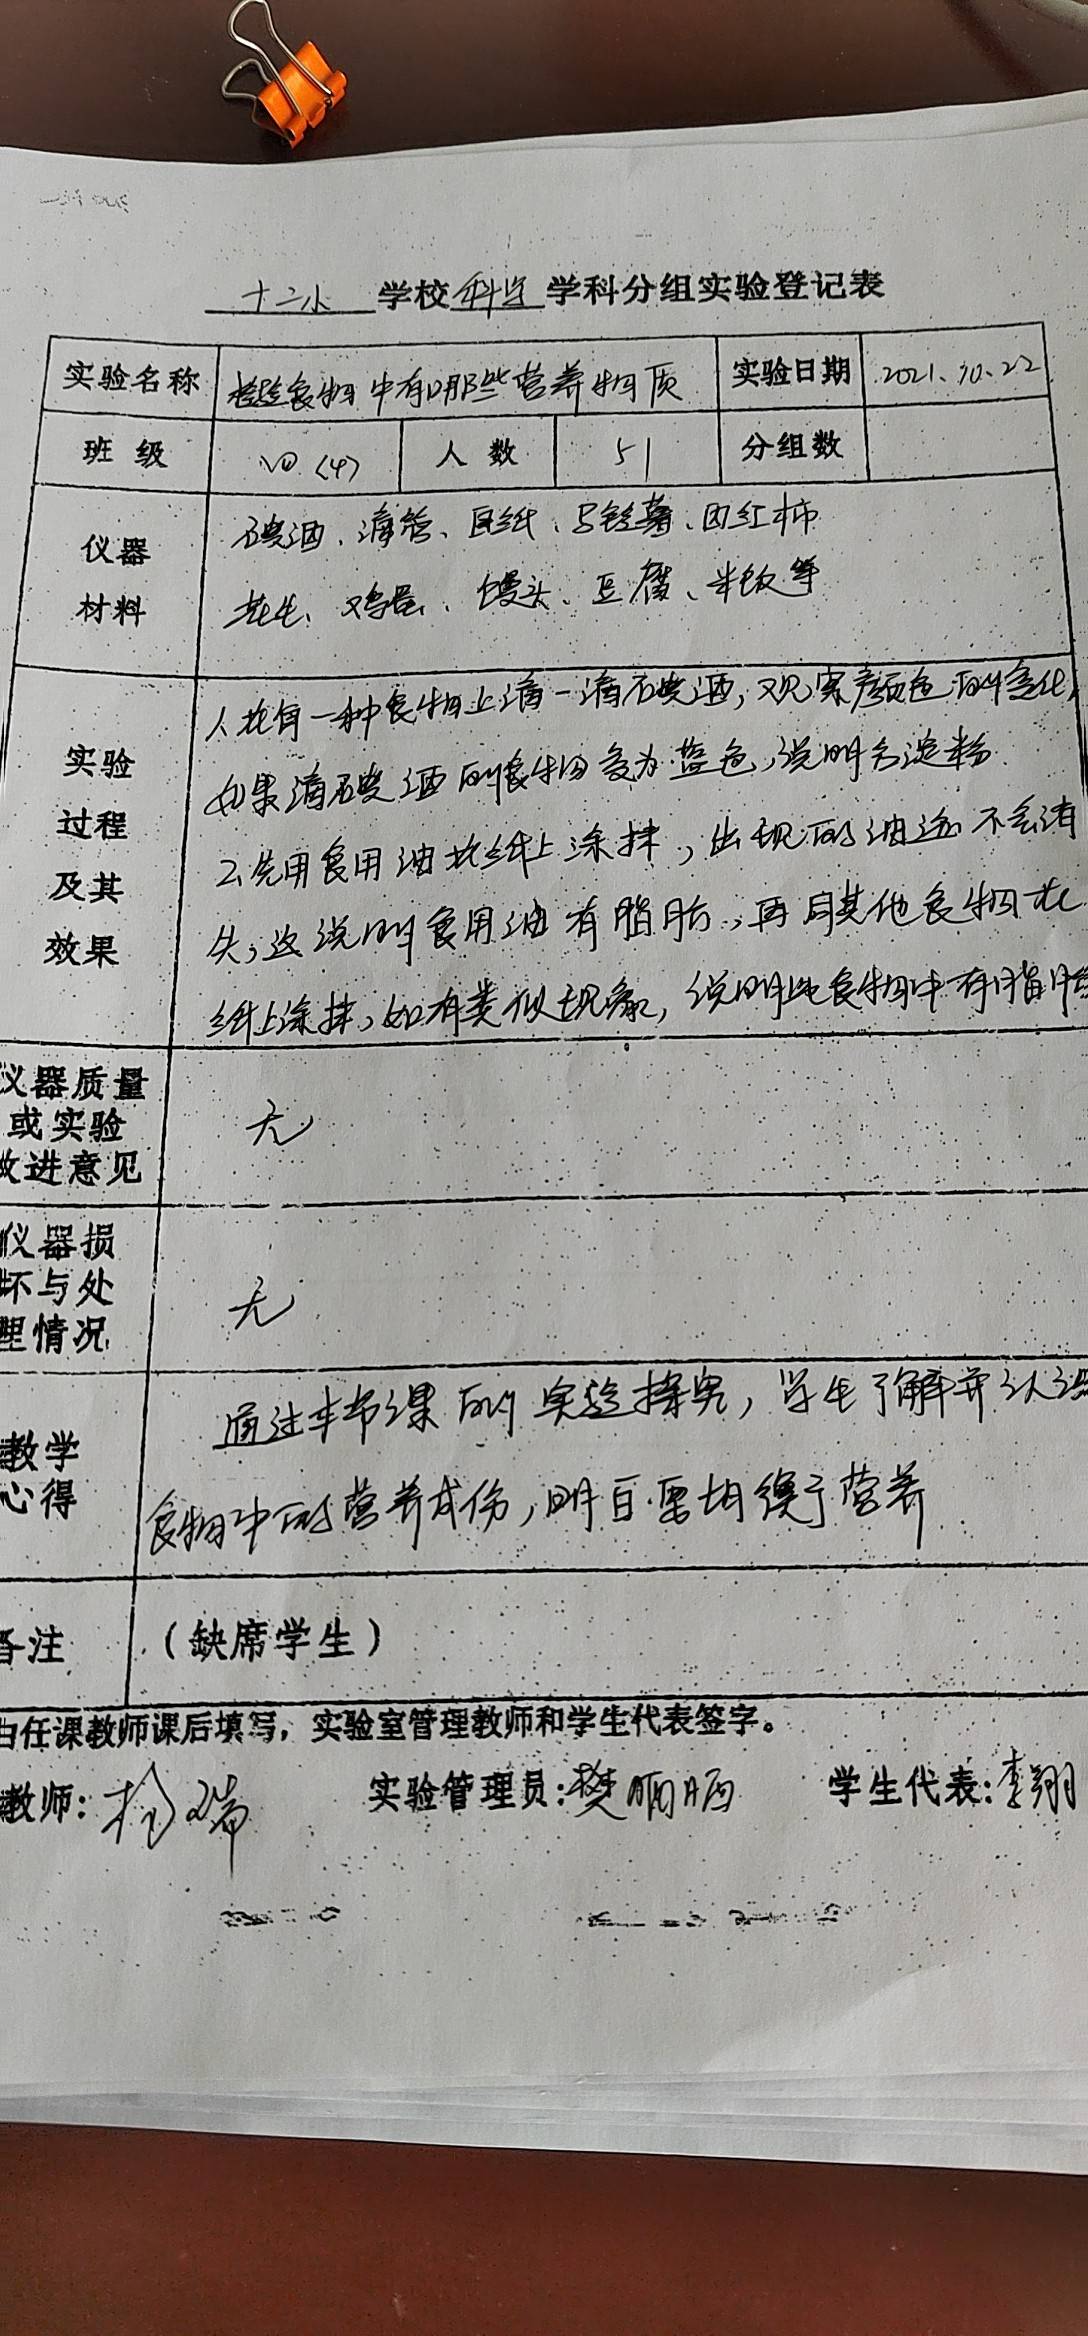 十二小 学校 科学 学科分组实验登记表
实验名称 检验食物中有哪些营养物质 实验日期 2021.10.22
班级 四(4) 人数 51 分组数
仪器材料
碘酒、滴管、白纸、马铃薯、西红柿
花生、鸡蛋、馒头、豆腐、米饭等
实验过程及其效果
1.在每一种食物上滴一滴碘酒,观察颜色的变化,
如果滴碘酒的食物变为蓝色,说明含淀粉.
2.先用食用油在纸上涂抹,出现的油迹不会消
失,这说明食用油有脂肪,再用其他食物在
纸上涂抹,如有类似现象,说明此食物中有脂肪
仪器质量
或实验
改进意见
无
仪器损
坏与处
理情况
无
教学
心得
通过本节课的实验探究,学生了解并认识
食物中的营养成份,明白要均衡营养
备注 (缺席学生)
由任课教师课后填写,实验室管理教师和学生代表签字。
教师: 实验管理员:樊 学生代表:李翔